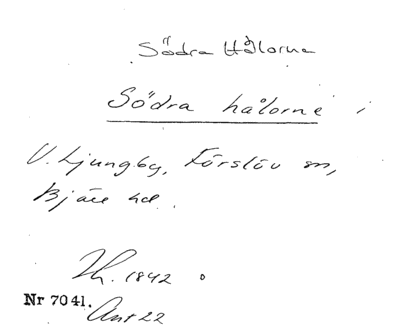 Södra Hålorna
Södra hålorne i
V. Ljungby, Förslöv sn,
Bjäre hd.
1842
Nr 7041.
Ant 22